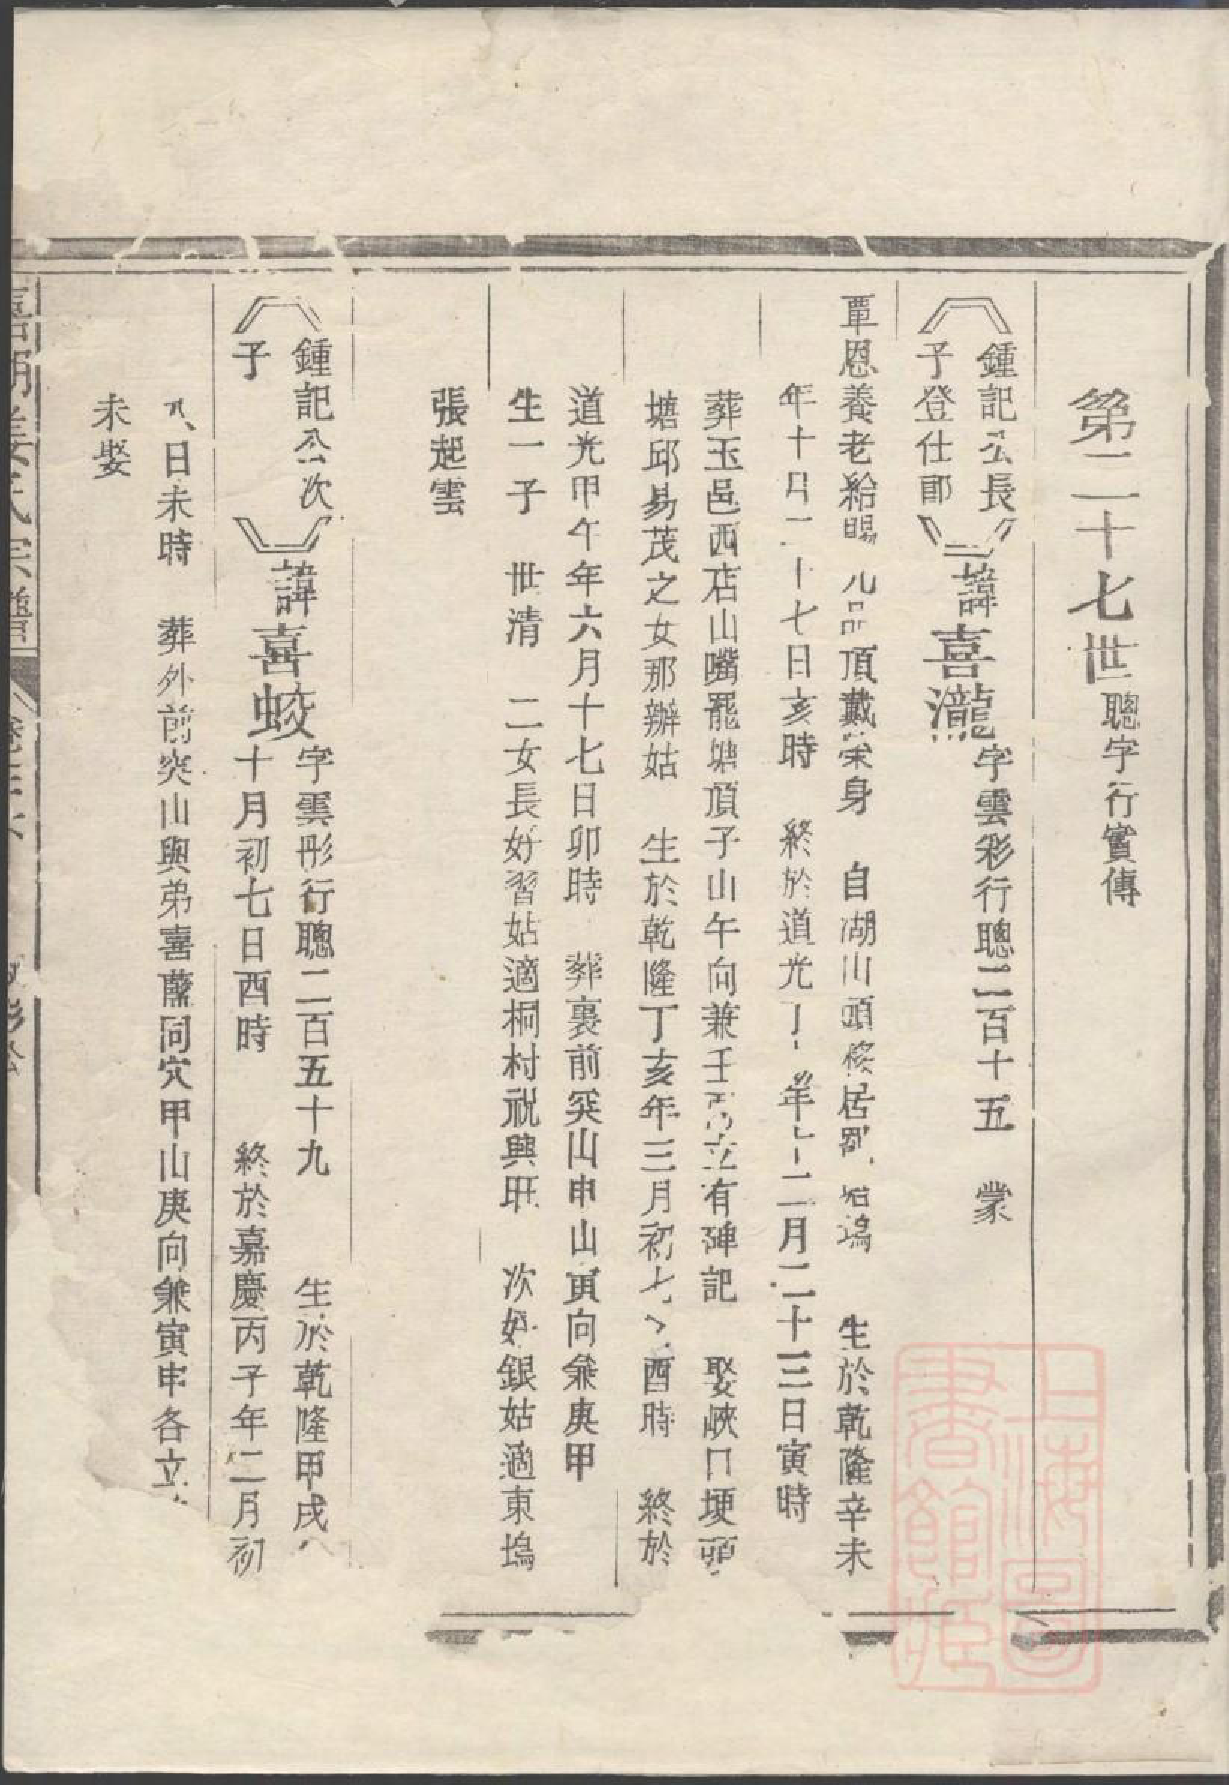 第二十七世聰字行實傳
鍾記公長
子登仕郎
諱喜瀧
字雲彩行聰二百十五 蒙
覃恩養老給賜九品頂戴榮身 自湖山頭 居 塢 生於乾隆辛未
年十月二十七日亥時 終於道光 年十二月二十三日寅時
葬玉邑西店山嘴罷塘頂子山午向兼壬丙立有碑記 娶峽口埂頭
塘邱易茂之女那辦姑 生於乾隆丁亥年三月初七 酉時 終於
道光甲午年六月十七日卯時 葬裏前突山申山寅向兼庚甲
生一子 世清 二女長好習姑適桐村祝興旺 次好銀姑適東塢
張起雲
鍾記公次
子
諱喜蛟
字雲彤行聰二百五十九 生於乾隆甲戌
十月初七日酉時 終於嘉慶丙子年二月初
八日未時 葬外前突山與弟喜 同穴甲山庚向兼寅申各立
未娶
姜氏宗譜
上海圖書館藏